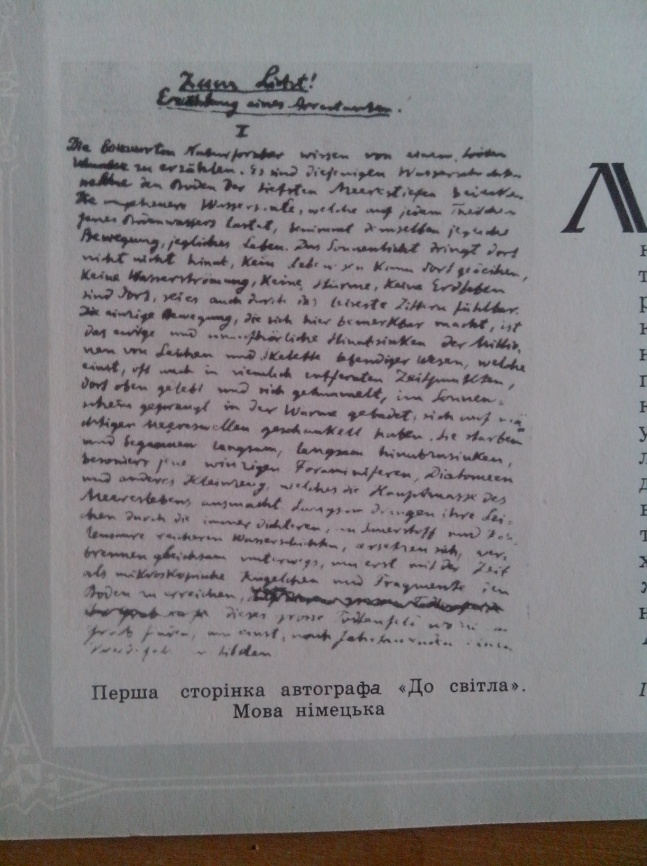 Zum Licht!
Erzählung eines Arrestanten.
I
Die Naturforscher wissen von einem
zu erzählen. Es sind diejenigen Wasserschichten
welche den Boden der tiefsten Meerestiefen
Die Wassersäule, welche auf jedem
jenes lastet, benimmt demselben jegliche
Bewegung, jegliches Leben. Das Sonnenlicht dringt dort
nicht hinab, kein kann dort gedeihen,
keine Wasserströmung, keine Stürme, keine Erdbeben
sind dort, sei es auch durch das leiseste Zittern fühlbar.
Die einzige Bewegung, die sich hier bemerkbar macht, ist
das ewige und unaufhörliche Hinabsinken der Millio-
nen von Leichen und Skelette lebendiger Wesen, welche
einst, oft auch in ziemlich entfernten Zeitpunkten,
dort oben gelebt und sich getummelt, im Sonnen-
schein geprangt in der Wärme gebadet, sich auf mä-
chtigen Meereswellen geschaukelt haben. Sie starben
und begannen langsam, langsam hinabzusinken,
besonders jene winzigen Foraminiferen, Diatomeen
und anderes Kleinzeug, welches die Hauptmasse des
Meereslebens ausmacht. Langsam dringen ihre Lei-
chen durch die immer dichteren, an Sauerstoff und
reicheren Wasserschichten, zersetzen sich, ver-
brennen gleichsam unterwegs, um erst mit der Zeit
als mikroskopische Kügelchen und Fragmente den
Boden zu erreichen,
dieses grosse
um einst, nach Jahrtausenden
zu bilden
Перша сторінка автографа «До світла».
Мова німецька